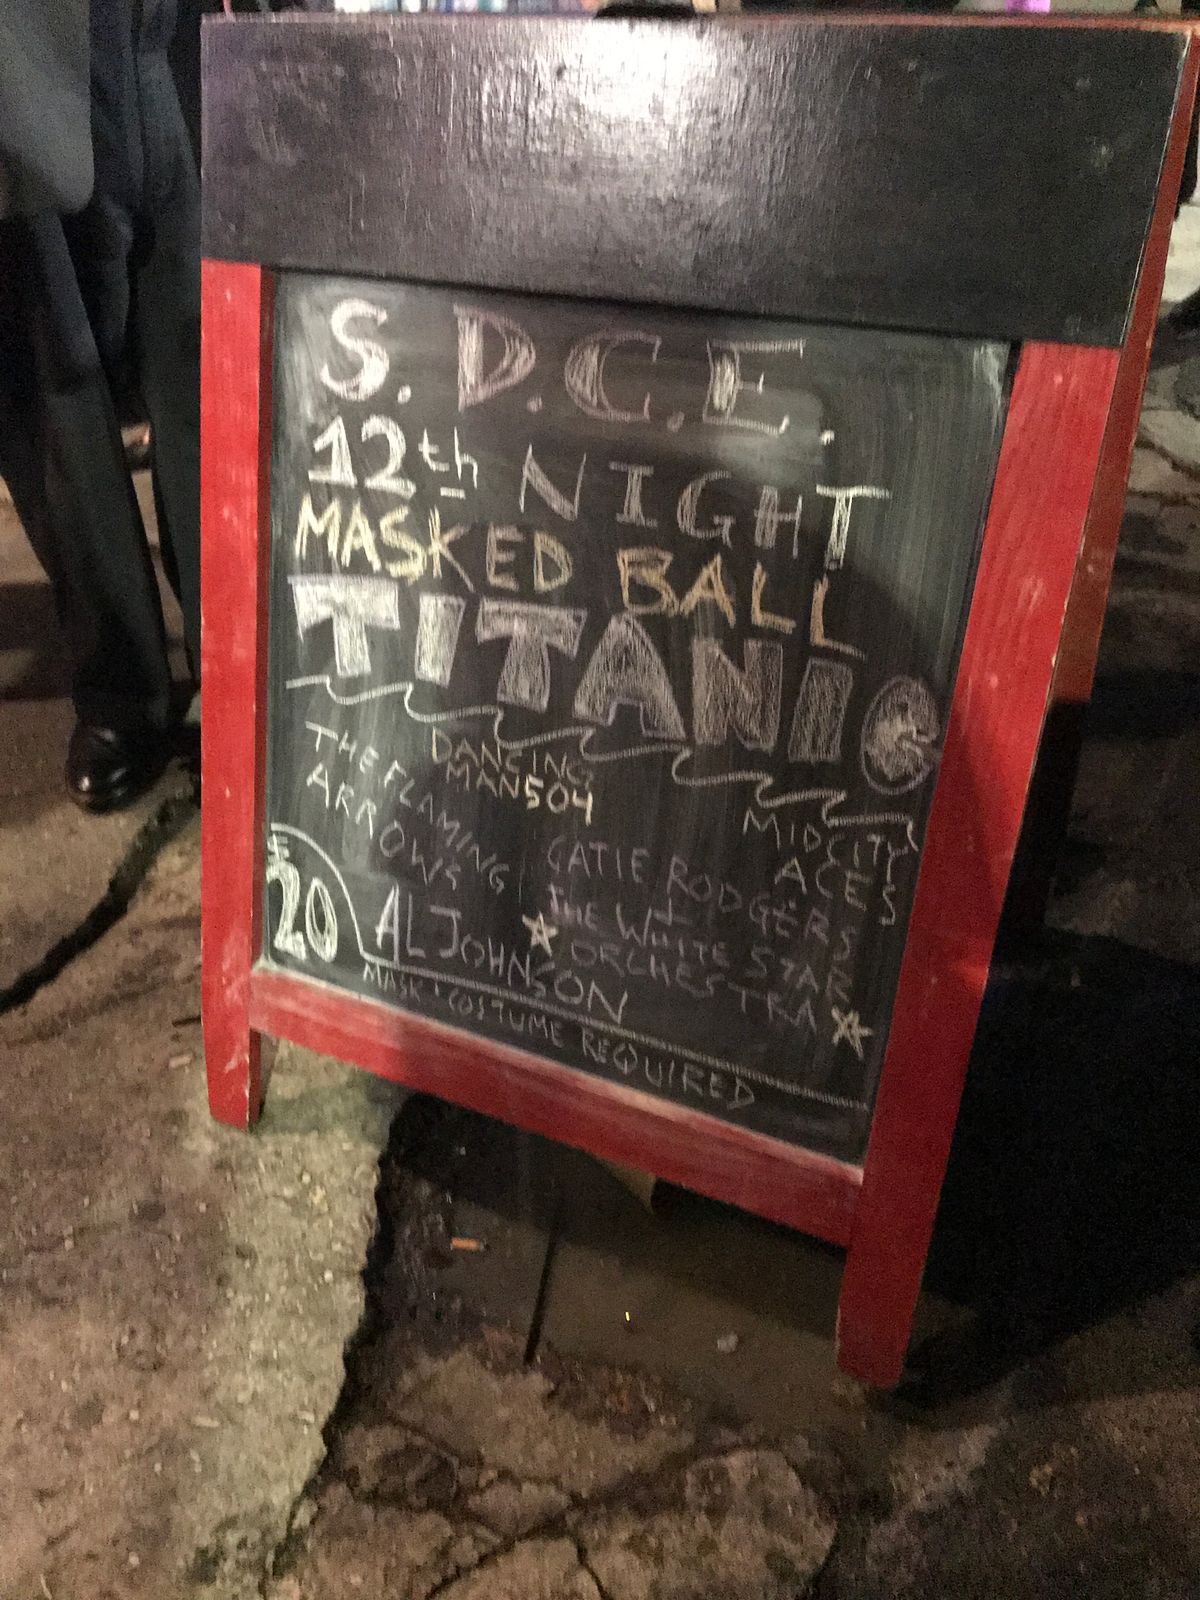 S.D.C.E.
12th NIGHT
MASKED BALL
TITANIC
DANCING
MAN 504
THE FLAMING
ARROWS
MID CITY
ACES
20
AL JOHNSON
CATIE RODGERS
THE WHITE STAR
ORCHESTRA
MASK + COSTUME REQUIRED